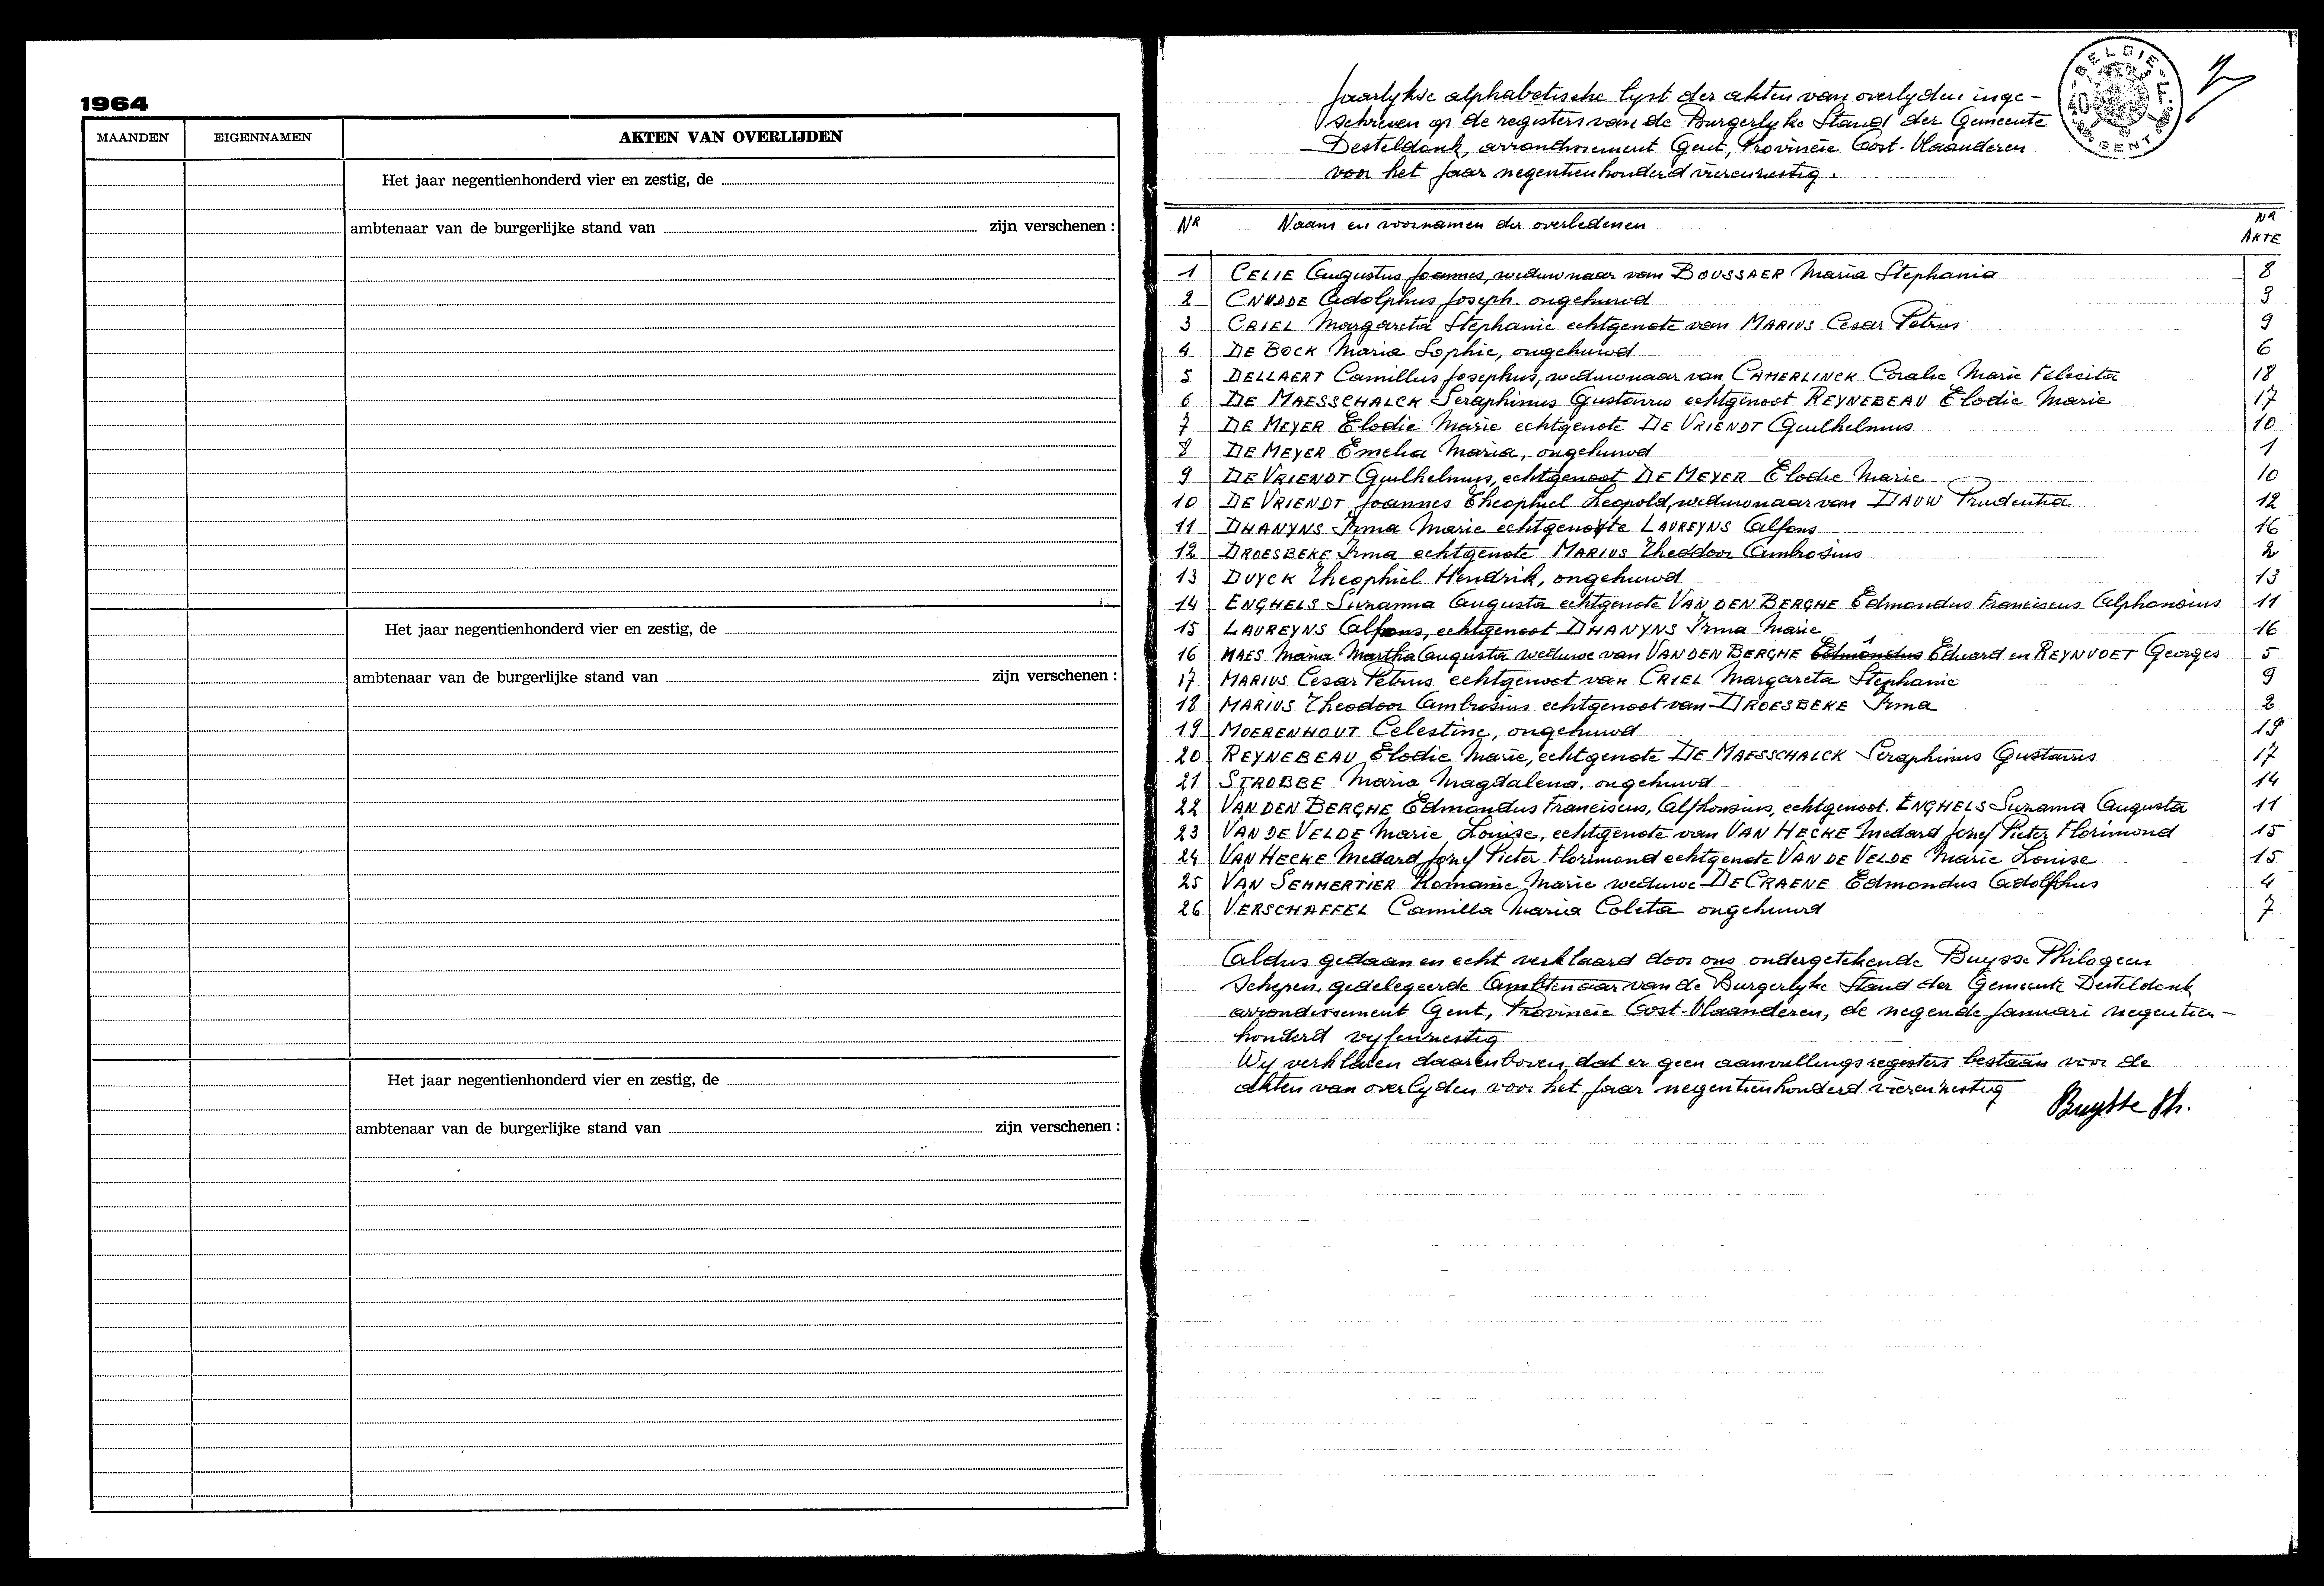 1964
MAANDEN EIGENNAMEN AKTEN VAN OVERLIJDEN
Het jaar negentienhonderd vier en zestig, de
ambtenaar van de burgerlijke stand van zijn verschenen :
Het jaar negentienhonderd vier en zestig, de
ambtenaar van de burgerlijke stand van zijn verschenen :
Het jaar negentienhonderd vier en zestig, de
ambtenaar van de burgerlijke stand van zijn verschenen :
BELGIE
40
GENT
Jaarlykse alphabetische lyst der akten van overlyden inge-
schreven op de registers van de Burgerlyke Stand der Gemeente
Desteldonk, arrondissement Gent, Provincie Oost-Vlaanderen
voor het jaar negentienhonderd vierenzestig.
NR Naam en voornamen der overledenen NR AKTE
1 CELIE Augustus Joannes, weduwnaar van BOUSSAER Maria Stephania 8
2 CNUDDE Adolphus Joseph. ongehuwd 3
3 CRIEL Margareta Stephanie echtgenote van MARIUS Cesar Petrus 9
4 DE BOCK Maria Sophie, ongehuwd 6
5 DELLAERT Camillus Josephus, weduwnaar van CAMERLINCK Coralie Marie Felecita 18
6 DE MAESSCHALCK Seraphinus Gustavus echtgenoot REYNEBEAU Elodie Marie 17
7 DE MEYER Elodie Marie echtgenote DE VRIENDT Guilhelmus 10
8 DE MEYER Emelia Maria, ongehuwd 1
9 DE VRIENDT Guilhelmus, echtgenoot DE MEYER Elodie Marie 10
10 DE VRIENDT Joannes Theophiel Leopold, weduwnaar van DAUW Prudentia 12
11 DHANYNS Irma Marie echtgenote LAUREYNS Alfons 16
12 DROESBEKE Irma echtgenote MARIUS Theodoor Ambrosius 2
13 DUYCK Theophiel Hendrik, ongehuwd 13
14 ENGHELS Suzanna Augusta echtgenote VAN DEN BERGHE Edmondus Franciscus Alphonsius 11
15 LAUREYNS Alfons, echtgenoot DHANYNS Irma Marie 16
16 MAES Maria Martha Augusta weduwe van VAN DEN BERGHE Edmondus Eduard en REYNVOET Georges 5
17 MARIUS Cesar Petrus echtgenoot van CRIEL Margareta Stephanie 9
18 MARIUS Theodoor Ambrosius echtgenoot van DROESBEKE Irma 2
19 MOERENHOUT Celestine, ongehuwd 19
20 REYNEBEAU Elodie Marie, echtgenote DE MAESSCHALCK Seraphinus Gustavus 17
21 STROBBE Maria Magdalena. ongehuwd 14
22 VAN DEN BERGHE Edmondus Franciscus, Alfhonsius, echtgenoot. ENGHELS Suzanna Augusta 11
23 VAN DE VELDE Marie Louise, echtgenote van VAN HECKE Medard Jozef Pieter Florimond 15
24 VAN HECKE Medard Jozef Pieter Florimond echtgenote VAN DE VELDE Marie Louise 15
25 VAN SEMMERTIER Romanie Marie weduwe DE CRAENE Edmondus Adolphus 4
26 VERSCHAFFEL Camilla Maria Coleta ongehuwd 7
Aldus gedaan en echt verklaard door ons ondergetekende Buysse Philogeen
Schepen, gedelegeerde Ambtenaar van de Burgerlyke Stand der Gemeente Desteldonk
arrondissement Gent, Provincie Oost-Vlaanderen, de negende Januari negentien-
honderd vyfenzestig
Wy verklaren daarenboven, dat er geen aanvullingsregisters bestaan voor de
akten van overlyden voor het jaar negentienhonderd vierenzestig
Buysse Ph.